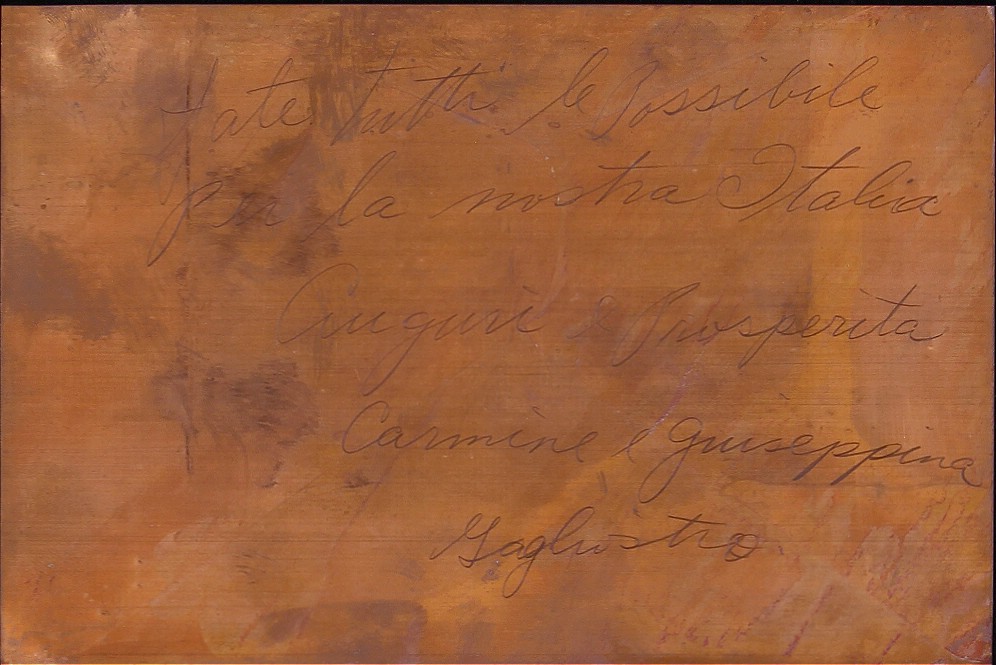 Fate tutti le Possibile
per la nostra Italia
Auguri e Prosperita
Carmine e Giuseppina
Gagliostro